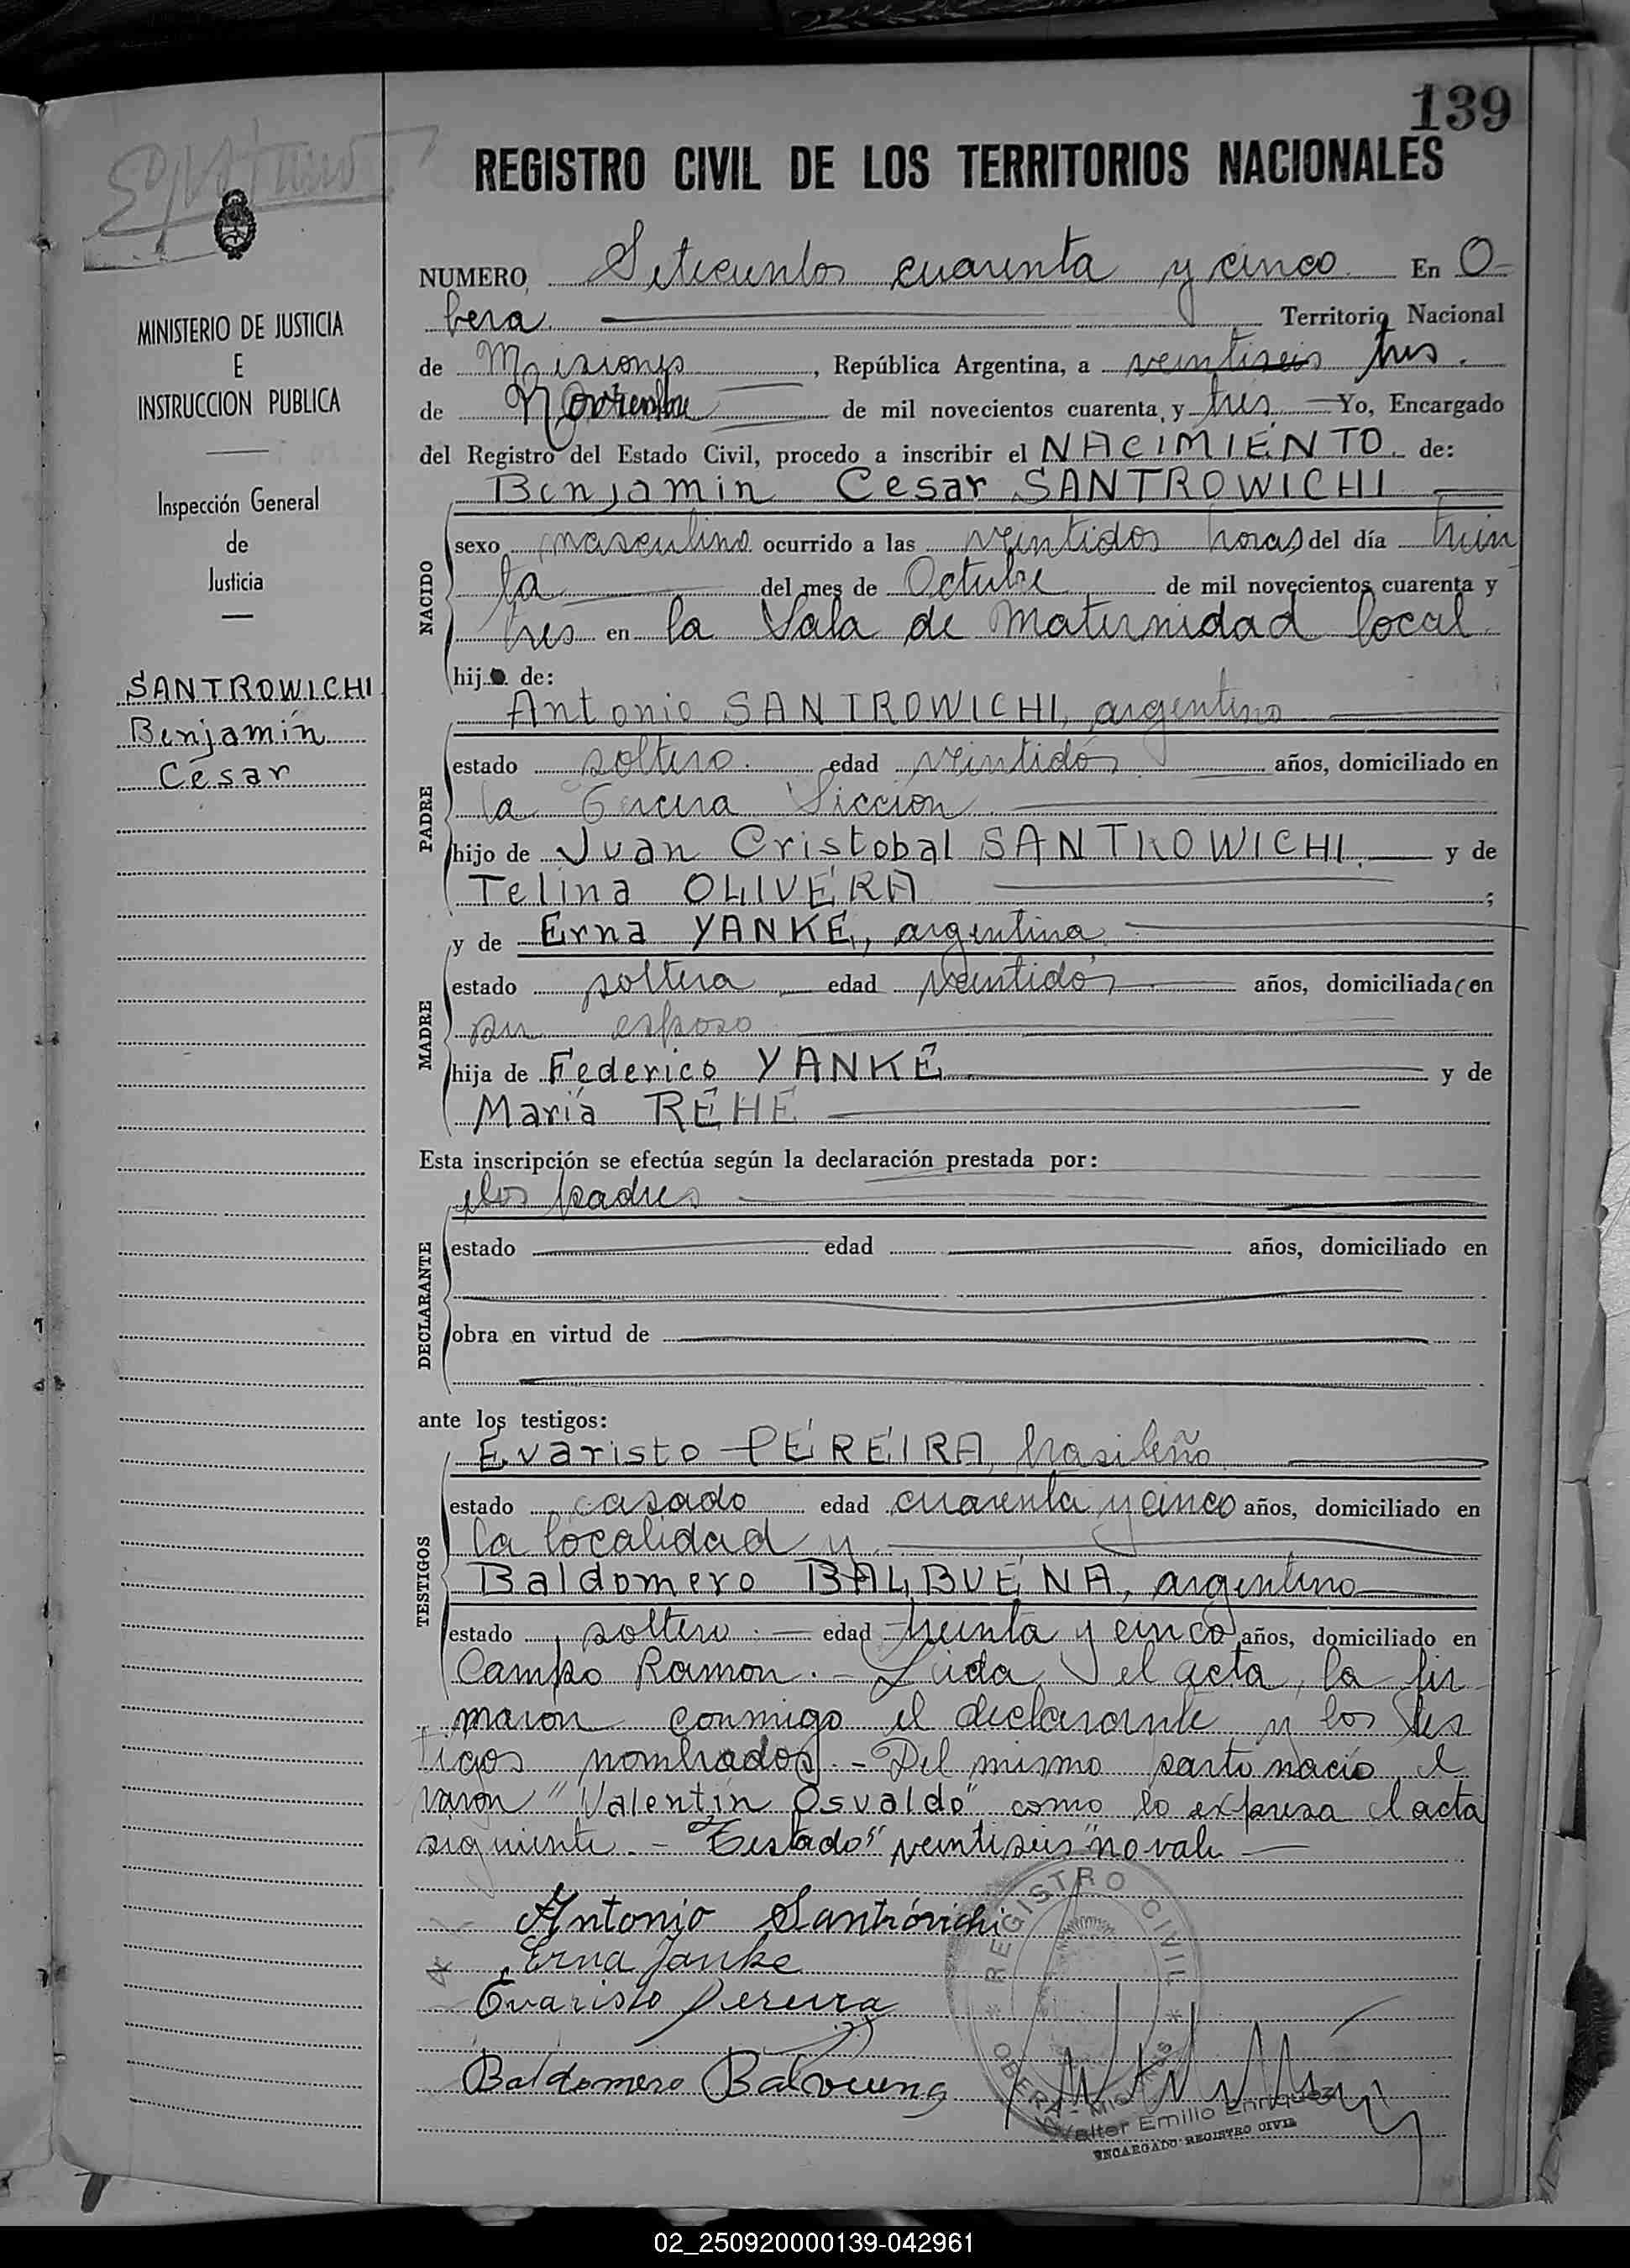 139
REGISTRO CIVIL DE LOS TERRITORIOS NACIONALES
MINISTERIO DE JUSTICIA
E
INSTRUCCION PUBLICA
Inspección General
de
Justicia
SANTROWICHI
Benjamín
César
NUMERO Setecientos cuarenta y cinco En O-
bera Territorio Nacional
de Misiones, República Argentina, a veintiseis tres.
de Noviembre de mil novecientos cuarenta y tres Yo, Encargado
del Registro del Estado Civil, procedo a inscribir el NACIMIENTO de:
Benjamin Cesar SANTROWICHI
NACIDO
sexo masculino ocurrido a las veintidos horas del día trein
ta del mes de Octubre de mil novecientos cuarenta y
tres en la Sala de Maternidad local
hijo de:
PADRE
Antonio SANTROWICHI, argentino
estado soltero. edad veintidós años, domiciliado en
la Tercera Sección
hijo de Juan Cristobal SANTROWICHI. y de
Telina OLIVERA ;
MADRE
y de Erna YANKE, argentina
estado soltera edad veintidós años, domiciliada (en
su esposo
hija de Federico YANKE y de
María REHE
Esta inscripción se efectúa según la declaración prestada por:
DECLARANTE
los padres
estado edad años, domiciliado en
obra en virtud de
ante los testigos:
TESTIGOS
Evaristo PEREIRA, brasileño
estado casado edad cuarenta y cinco años, domiciliado en
la localidad y
Baldomero BALBUENA, argentino
estado soltero. edad treinta y cinco años, domiciliado en
Campo Ramon. - Leida el acta, la fir
maron conmigo el declarante y los tes
tigos nombrados. - Del mismo parto nacio el
varon "Valentín Osvaldo" como lo expresa el acta
siguiente. - Testado "veintiseis" no vale
Antonio Santróvichi
Erna Janke
Evaristo Pereira
Baldomero Balvuena
REGISTRO CIVIL
OBERA - MISIONES
Walter Emilio Enriquez
ENCARGADO REGISTRO CIVIL
02_250920000139-042961